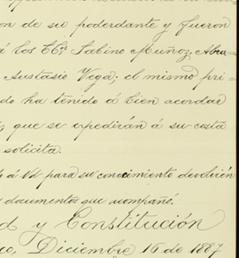 on de su poderdante y fueron
á los CC.ˢ Sabino Muñoz, Abra-
Eustasio Vega; el mismo pri-
do ha tenido á bien acordar
que se expedirán á su costa
solicita.
á Ud para su conocimiento devolvién
documentos que acompañó.
d y Constitución
co, Diciembre 16 de 1887